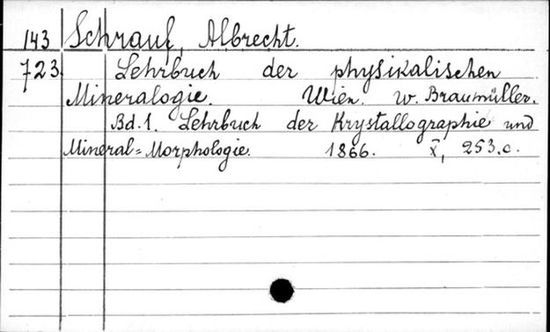 143 Schrauf, Albrecht.
723 Lehrbuch der physikalischen
Mineralogie. Wien. W. Braumüller.
Bd. 1. Lehrbuch der Krystallographie und
Mineral=Morphologie. 1866. X, 253.c.